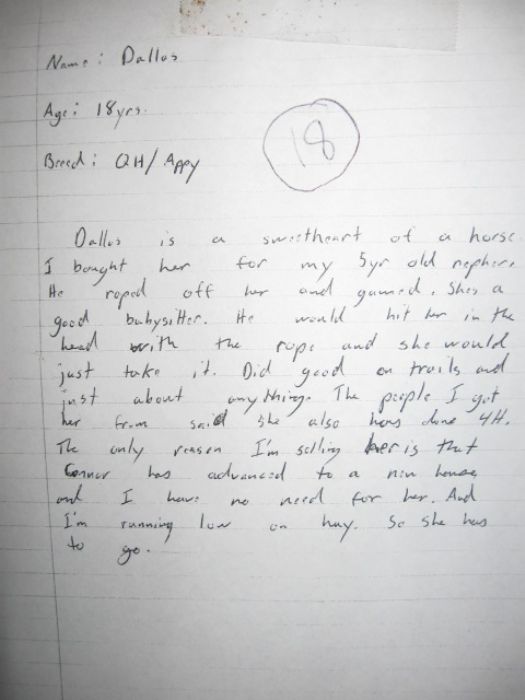 Name: Dallas
Age: 18yrs.
18
Breed: QH/Appy
Dallas is a sweetheart of a horse.
I bought her for my 5yr old nephew.
He roped off her and gamed. Shes a
good babysitter. He would hit her in the
head with the rope and she would
just take it. Did good on trails and
just about anything. The people I got
her from said she also has done 4H.
The only reason I'm selling her is that
Connor has advanced to a new horse,
and I have no need for her. And
I'm running low on hay. So she has
to go.